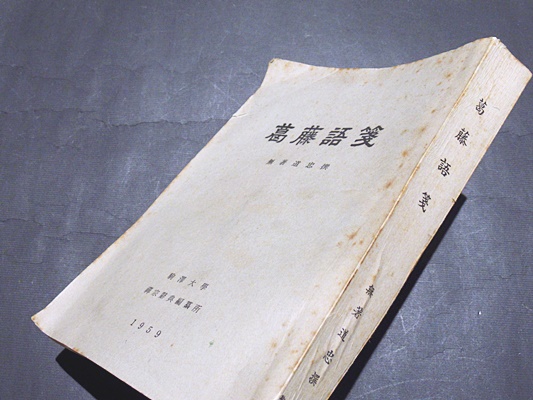 葛藤語箋
無著道忠撰
駒澤大學
禪宗辭典編纂所
1959
葛藤語箋
無著道忠撰